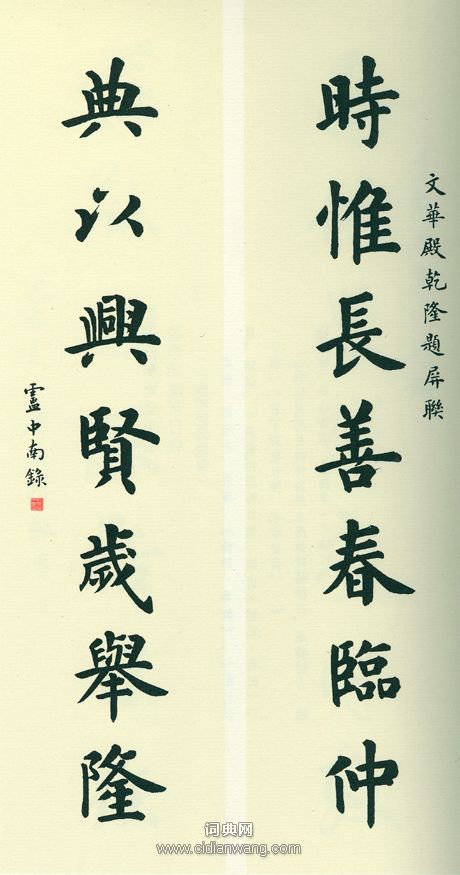 文華殿乾隆題屏聯
時惟長善春臨仲
典以興賢歲舉隆
盧中南錄
词典网
www.cidianwang.com